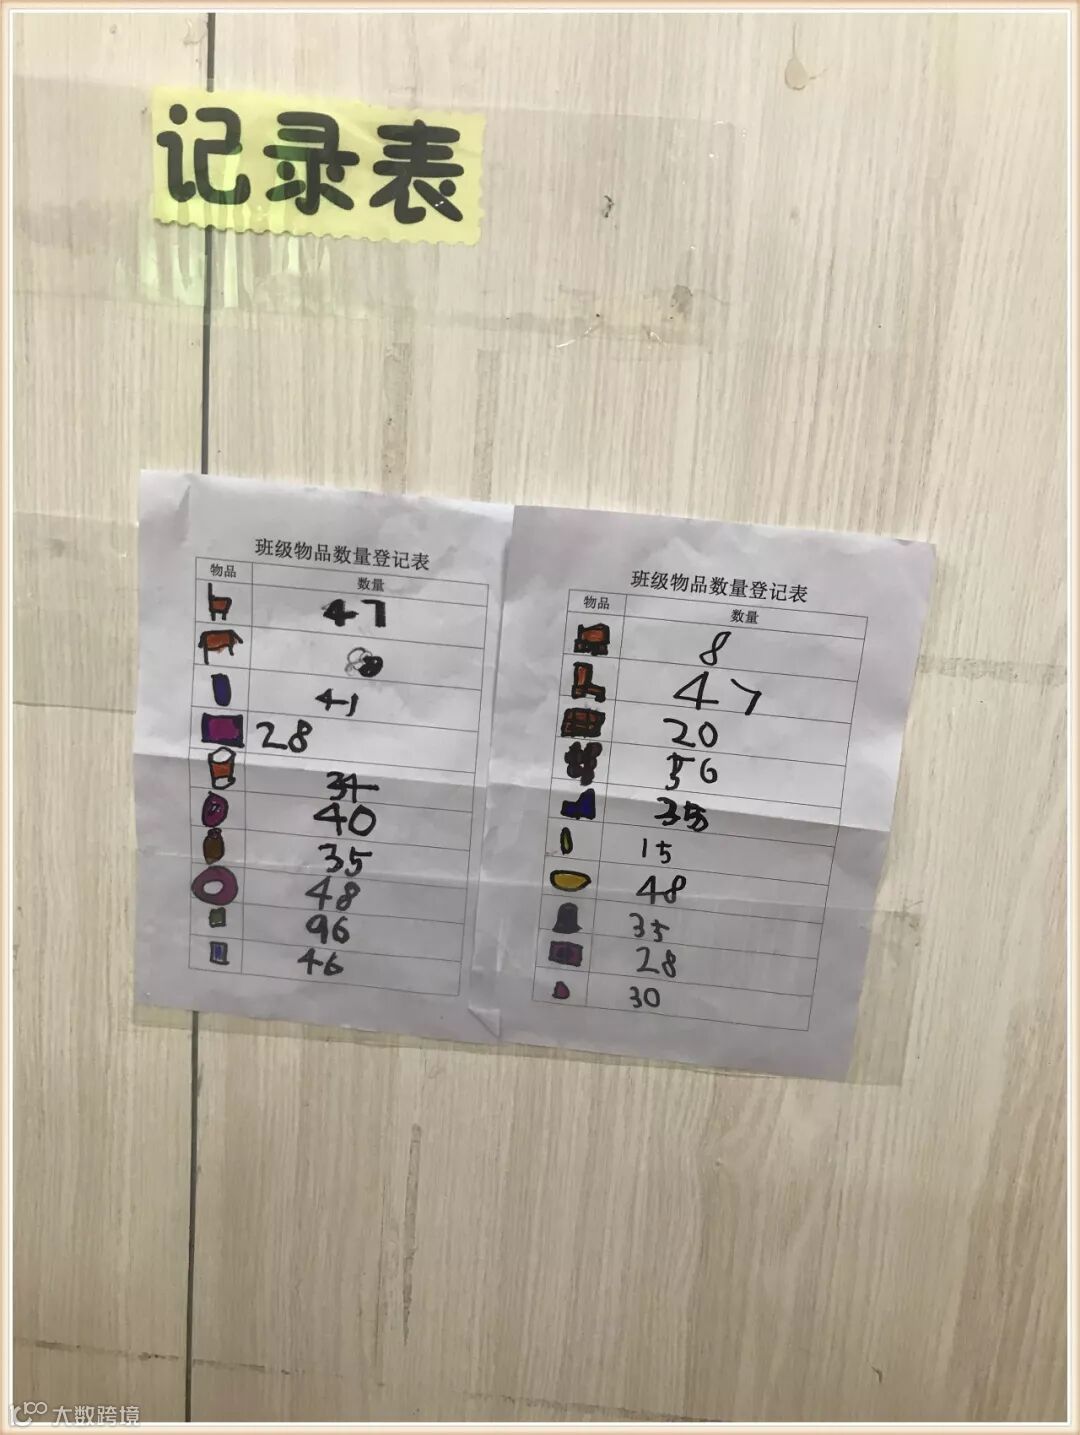 记录表
班级物品数量登记表
物品 数量
47
41
28
34
40
35
48
96
46
班级物品数量登记表
物品 数量
8
47
20
56
35
15
48
35
28
30
大数跨境